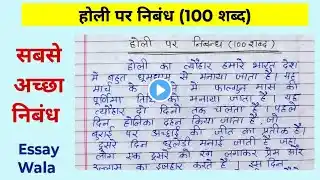 होली पर निबंध (100 शब्द)
सबसे
अच्छा
निबंध
Essay
Wala
होली पर निबन्ध (100 शब्द)
होली का त्यौहार हमारे भारत देश
में बहुत धूमधाम से मनाया जाता है। यह
मार्च के में फाल्गुन मास की
पूर्णिमा तिथि को मनाया जाता है। यह
त्यौहार दो दिनों तक चलता है। पहले
दिन होलिका दहन किया जाता है, जो
बुराई पर अच्छाई की जीत का प्रतीक है।
दूसरे दिन धुलेंडी मनाई जाती है जहाँ
लोग एक दूसरे को रंग लगाकर प्रेम और
उल्लास का इजहार करते हैं। इस दिन